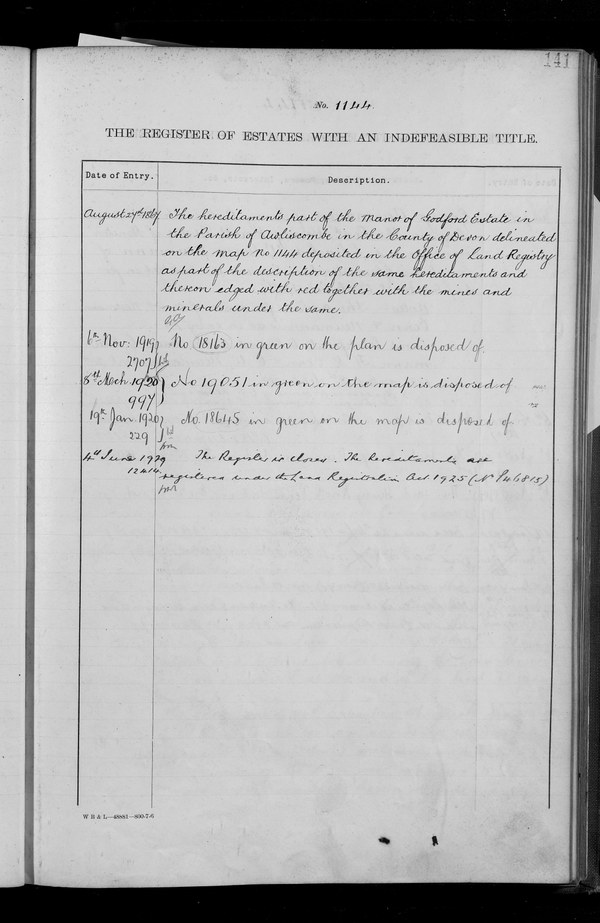 141
No. 1144.
THE REGISTER OF ESTATES WITH AN INDEFEASIBLE TITLE.
Date of Entry. Description.
August 27th 1867 The hereditaments part of the Manor of Godford Estate in
the Parish of Awliscombe in the County of Devon delineated
on the map No 1144 deposited in the Office of Land Registry
as part of the description of the same hereditaments and
thereon edged with red together with the mines and
minerals under the same.
6th Nov: 1919 No 18163 in green on the plan is disposed of
2707
8th Mch 1920 No 19051 in green on the map is disposed of
997
19th Jan 1920 No. 18645 in green on the map is disposed of
229
4th June 1929 The Register is closed. The hereditaments are
12414 registered under the Land Registration Act 1925 (No P46815)
W B & L—49881—800-7-6